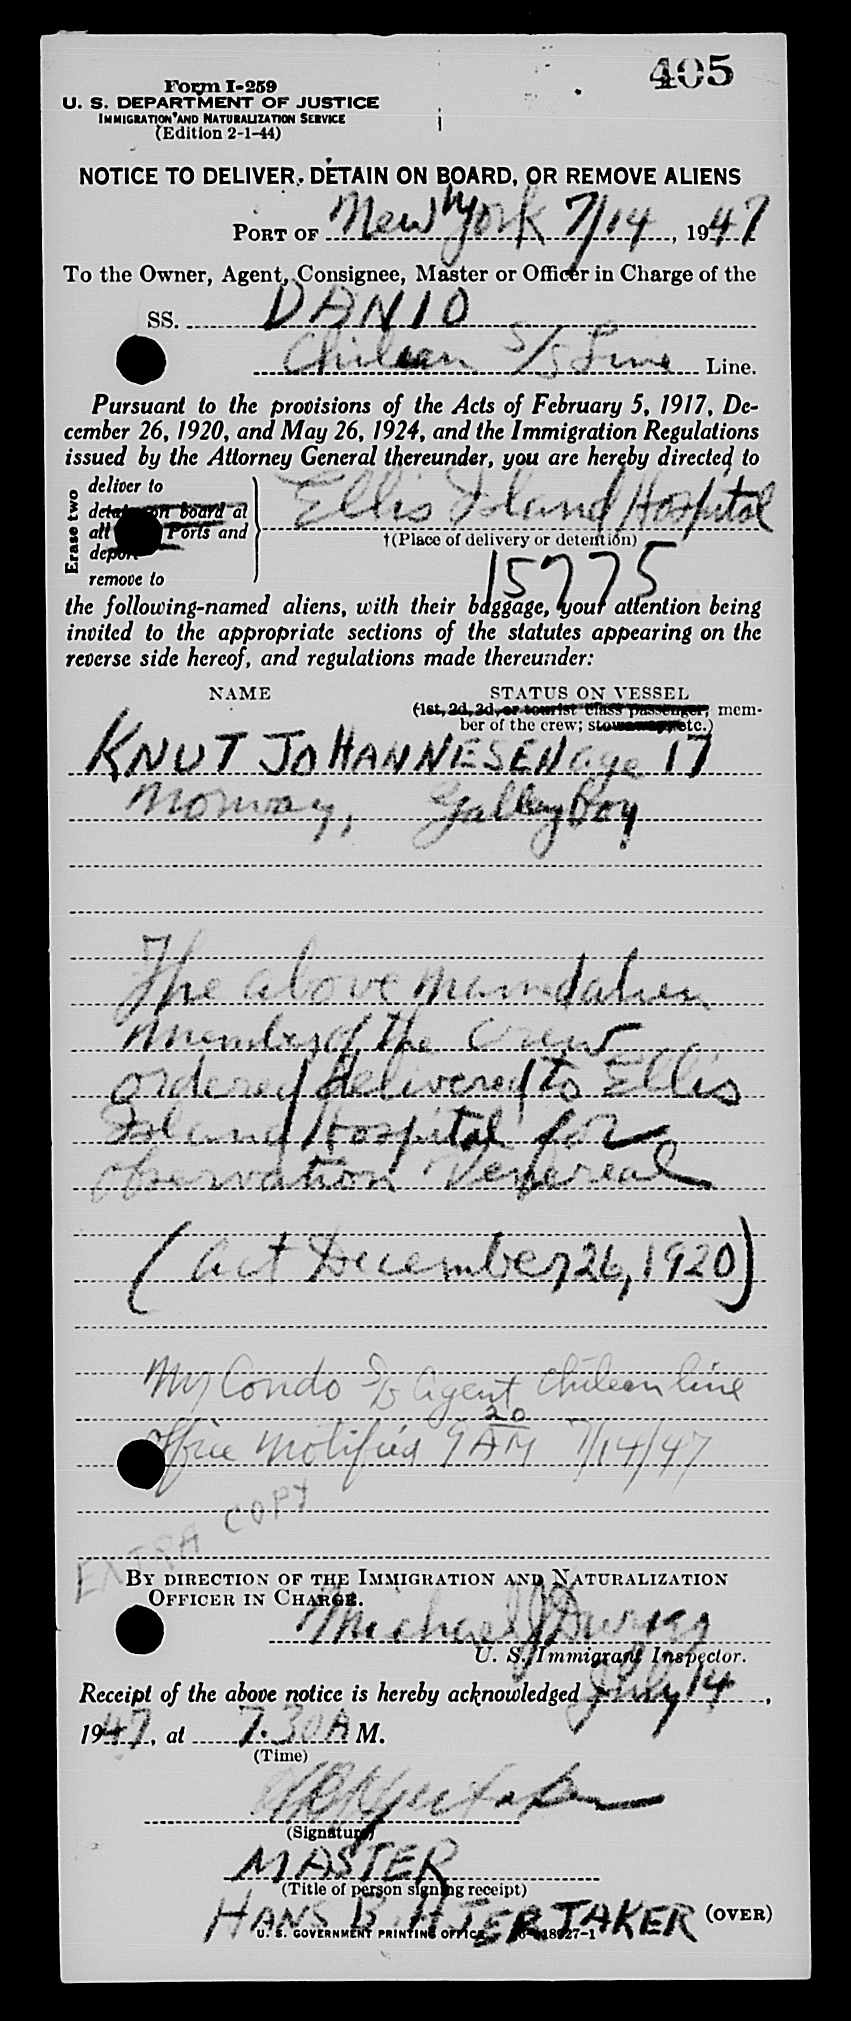 405
Form I-259
U. S. DEPARTMENT OF JUSTICE
IMMIGRATION AND NATURALIZATION SERVICE
(Edition 2-1-44)
NOTICE TO DELIVER, DETAIN ON BOARD, OR REMOVE ALIENS
PORT OF New York NY 7/14, 1947
To the Owner, Agent, Consignee, Master or Officer in Charge of the
SS. DANIO
Chilean S/S Line Line.
Pursuant to the provisions of the Acts of February 5, 1917, De-
cember 26, 1920, and May 26, 1924, and the Immigration Regulations
issued by the Attorney General thereunder, you are hereby directed to
Erase two
deliver to
detain on board at
all Ports and
deport
remove to
Ellis Island Hospital
†(Place of delivery or detention)
15775
the following-named aliens, with their baggage, your attention being
invited to the appropriate sections of the statutes appearing on the
reverse side hereof, and regulations made thereunder:
NAME STATUS ON VESSEL
(1st, 2d, 3d, or tourist class passenger; mem-
ber of the crew; stowaway, etc.)
KNUT JOHANNESEN age 17
Norway, Galley Boy
The above named alien
member of the crew
ordered delivered to Ellis
Island Hospital for
observation Venereal
(Act December 26, 1920)
Mr Condo Agent Chilean line
office notified 9 20 AM 7/14/47
EXTRA COPY
BY DIRECTION OF THE IMMIGRATION AND NATURALIZATION
OFFICER IN CHARGE.
Michael J
U. S. Immigrant Inspector.
Receipt of the above notice is hereby acknowledged July 14,
1947, at 7.30 A M.
(Time)
(Signature)
MASTER
(Title of person signing receipt)
HANS B. HJERTAKER (OVER)
U. S. GOVERNMENT PRINTING OFFICE 16-18927-1